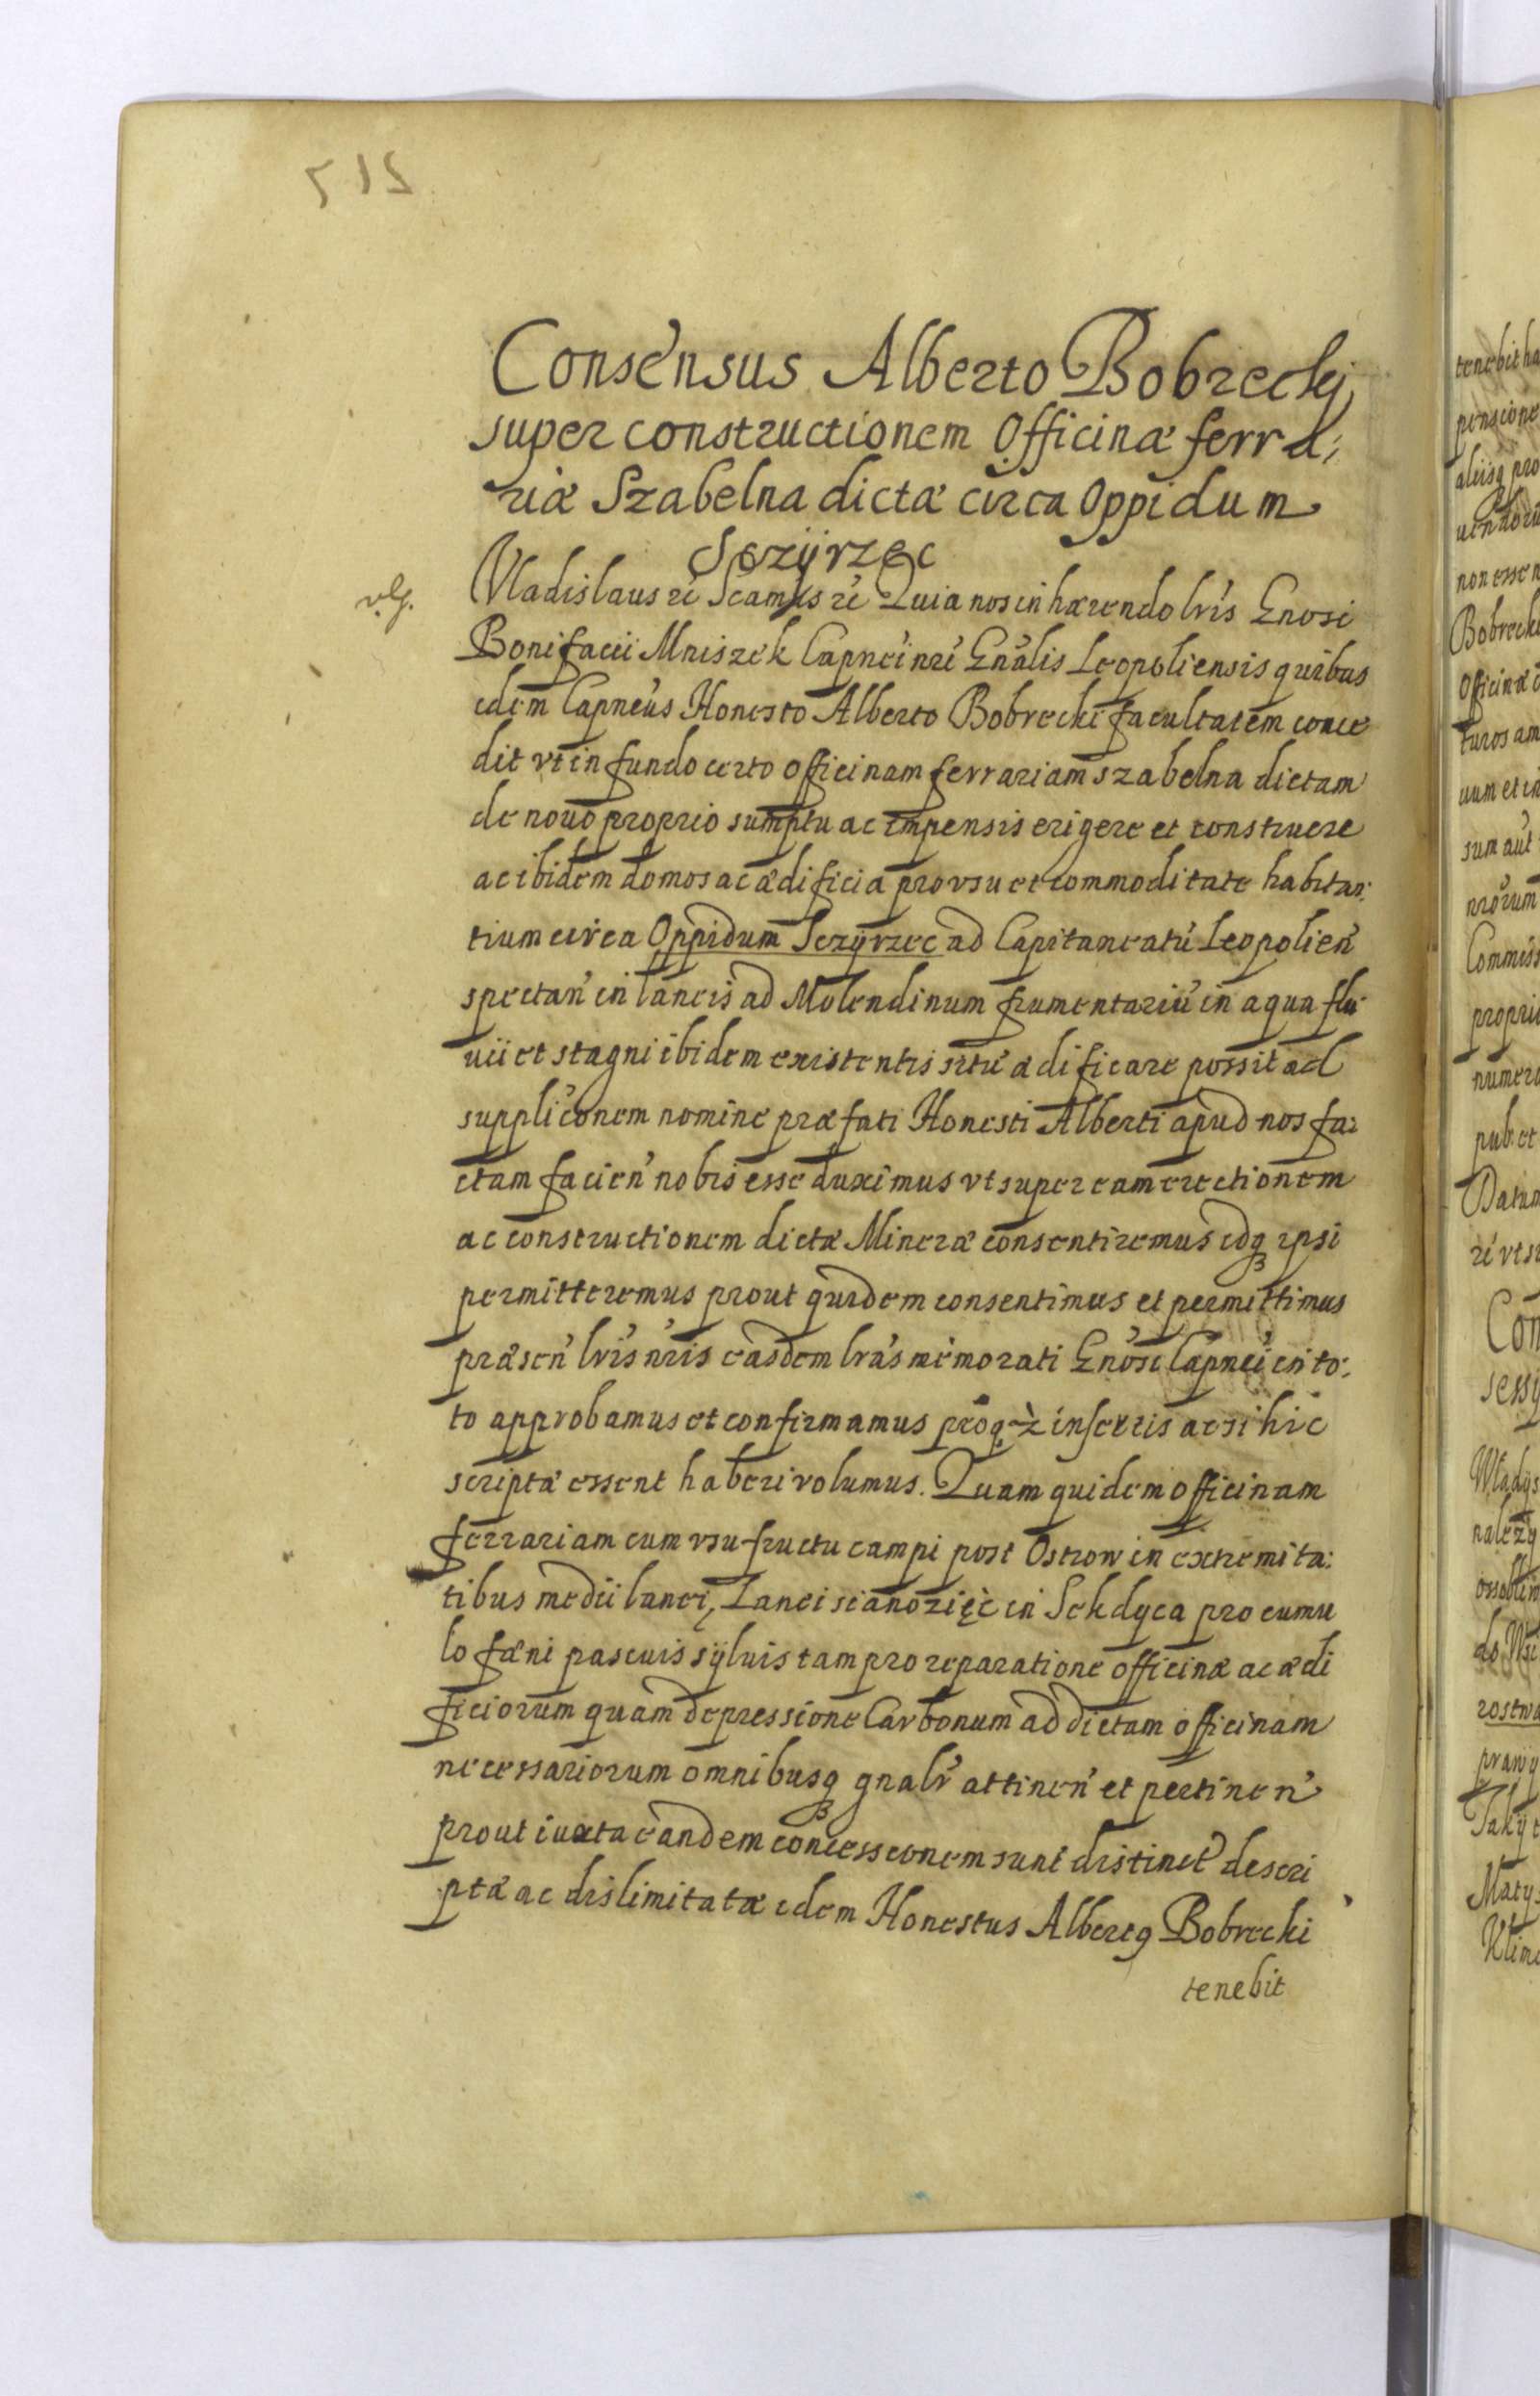 Consensus Alberto Bobrecky
super constructionem Officinæ ferra,
riæ Szabelna dictæ circa Oppidum
Sczÿrzec
Vladislaus rć Scamus rć Quia nos inhærendo lris Gnosi
Bonifacii Mniszek Capnei nri Gnalis Leopoliensis quibus
idem Capneus Honesto Alberto Bobrecki facultatem conce
dit vt in fundo certo officinam ferrariam szabelna dictam
de nouo proprio sumptu ac impensis erigere et construere
ac ibidem domos ac ædificia pro vsu et commoditate habitan:
tium circa Oppidum Sczÿrzec ad Capitaneatū Leopolien
spectan in laneis ad Molendinum frumentariū in aqua flu
uii et stagni ibidem existentis sitū ædificare possit ad
suppliconem nomine præfati Honesti Alberti apud nos fa:
ctam facien nobis esse duximus vt super eam erectionem
ac constructionem dictæ Mineræ consentiremus idq ipsi
permitteremus prout quidem consentimus et permittimus
præsen lris nris easdem lras memorati Gnosi Capnei in to:
to approbamus et confirmamus proq insertis ac si hic
scriptæ essent haberi volumus. Quam quidem officinam
ferrariam cum vsufructu campi post Ostrow in extremita:
tibus medii lanei, Lanei sianozięć in Sekdyca pro cumu
lo fæni pascuis sÿluis tam pro reparatione officinæ ac ædi
ficiorum quam depressione Carbonum ad dictam officinam
necessariorum omnibusq gnalr attinen et pertinen
prout iuxta eandem concessionem sunt distinct descri
ptæ ac dislimitatæ idem Honestus Albertq Bobrecki
tenebit